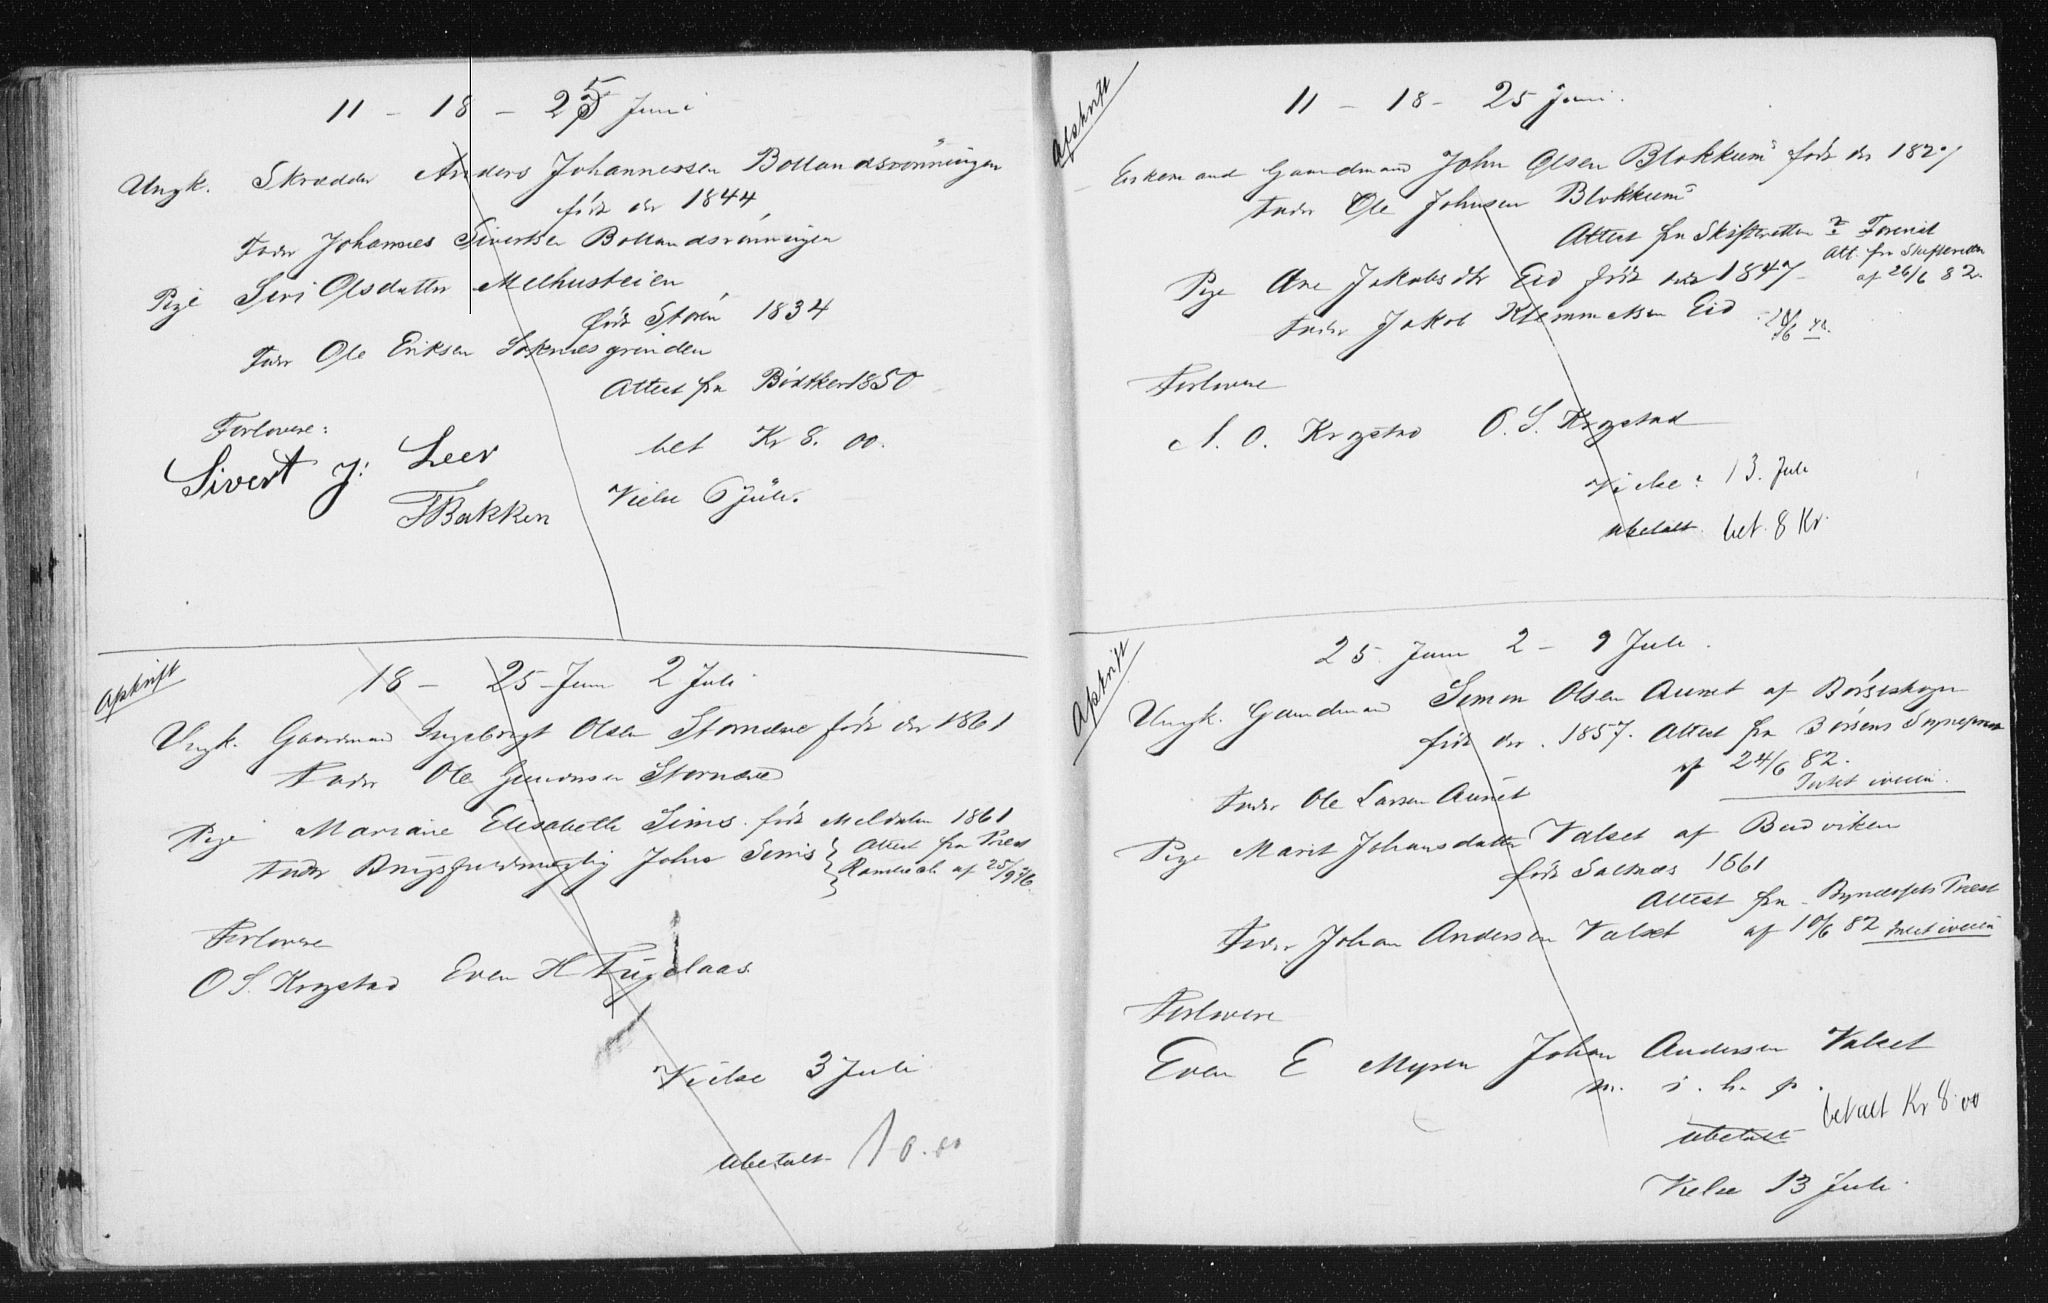 11 - 18 - 25 Juni
Ungk. Skrædder Anders Johannessen Bollandsrønningen
født der 1844
Fader Johannes Sivertsen Bollandsrønningen
Pige Siri Olsdatter Melhusteien
født Støren 1834
Fader Ole Eriksen Soknesgrinden
Attest fra Bödtker 1850
Forlovere:
Sivert J: Leer
bet Kr 8.00.
FBakken
Vielse 6 Juli.
Afskrift
18 - 25 Juni 2 Juli
Ungk. Gaardmand Ingebrigt Olsen født der 1861
Fader Ole
Pige Mariane Elisabeth Sims. født Meldalen 1861
Fader John Sims Attest fra Præst
af 25/9 76.
Forlovere
O S. Krogstad Even H Fuglaas
Vielse 3 Juli
ubetalt 10.00
Afskrift
11 - 18 - 25 Juni.
Enkemand Gaardmand John Olsen Blokkum født der 1827
Fader Ole Johnsen Blokkum
Attest fra Skifteretten
Att. fra Skifteretten
af 26/6 82.
Pige Ane Jakobsdtr Eid født 1847
Fader Jakob Klemmetsen Eid
Forlovere
N. O. Krogstad O. S. Krogstad
Vielse: 13. Juli
ubetalt. bet. 8 Kr.
Afskrift
25. Juni 2 - 9 Juli.
Ungk. Gaardmand Simon Olsen Aunet af Børseskogn
født der. 1857. Attest fra Børsens Sognepræst
af 24/6 82.
Intet iveien.
Fader Ole Larsen Aunet
Pige Marit Johansdatter Valset af Budviken
født Saltnes 1861
Attest fra Bynesets Præst
Fader Johan Andersen Valset af 10/6 82 Intet iveien
Forlovere
Even E Myren Johan Andersen Valset
m. i. h. p.
betalt Kr 8.00
ubetalt
Vielse 13 Juli.